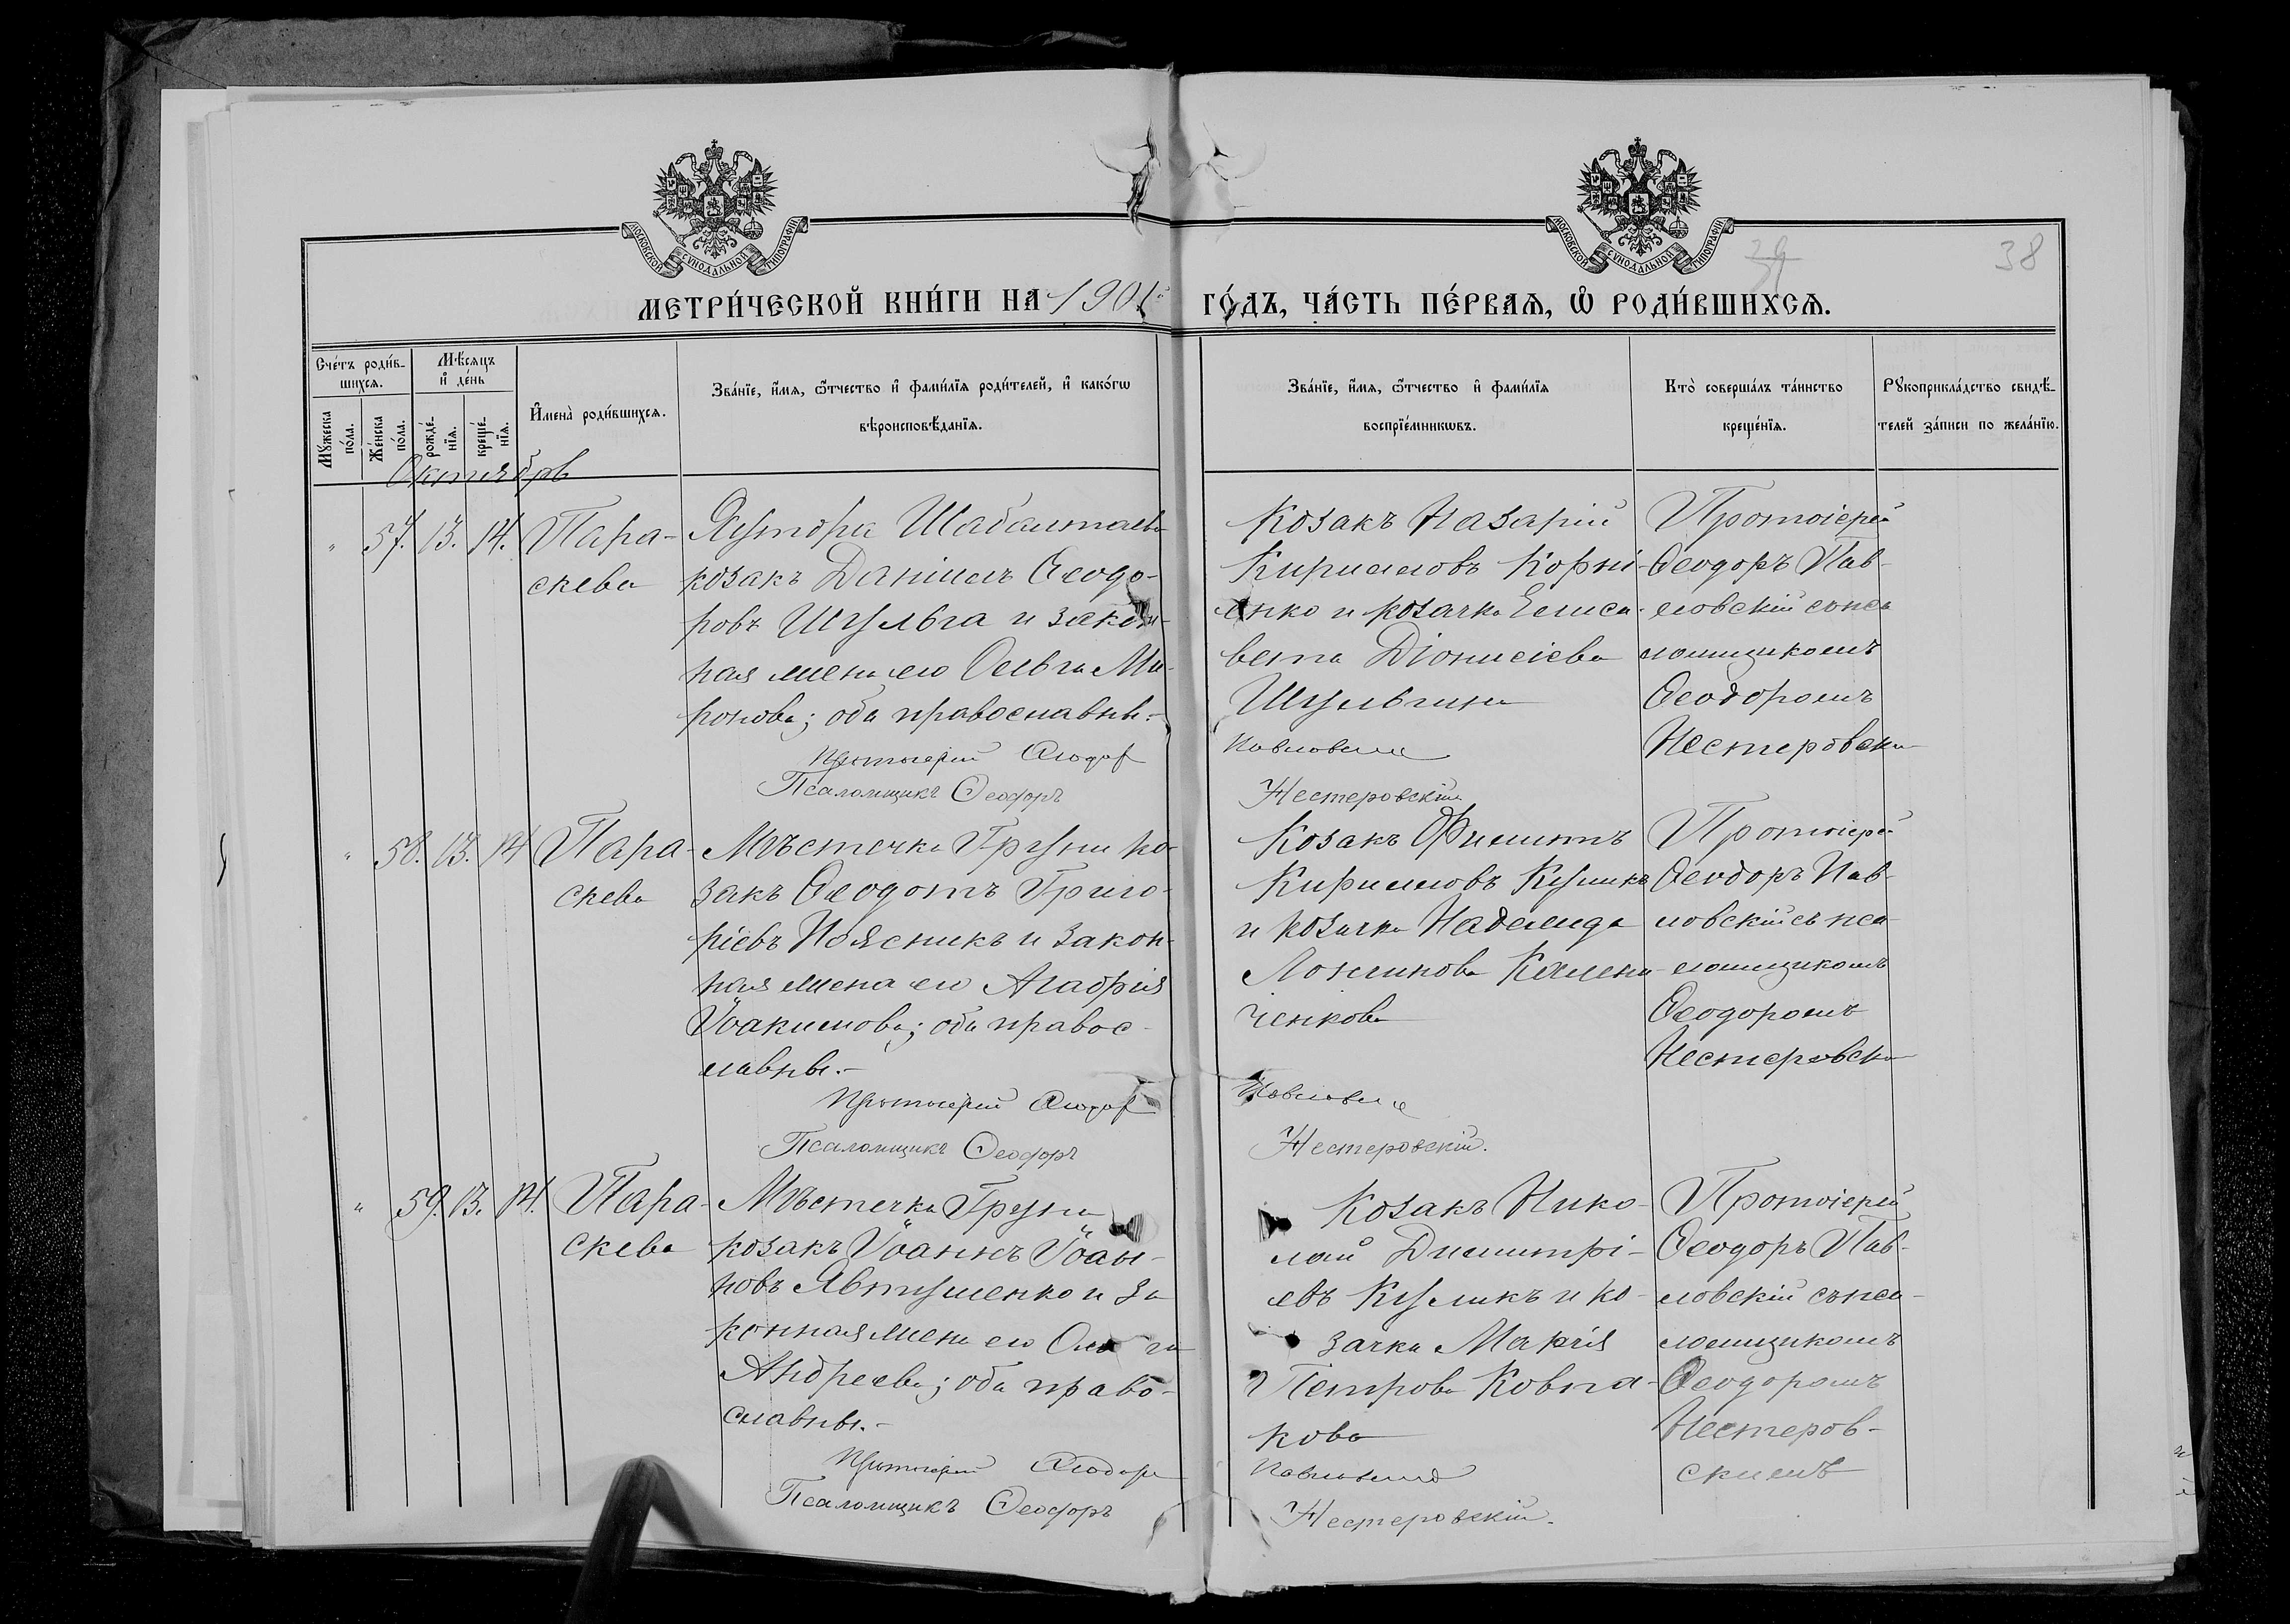 МОСКОВСКОЙ СѴНОДАЛЬНОЙ ТИПОГРАФІИ
МОСКОВСКОЙ СѴНОДАЛЬНОЙ ТИПОГРАФІИ
38
МЕТРИ́ЧЕСКОЙ КНИ́ГИ НА 1901й
ГО́ДЪ, ЧА́СТЬ ПЕ́РВАЯ, Ѡ РОДИ́ВШИХСЯ.
Сче́тъ роди́в-
шихся.
Мꙋ́жеска
по́ла.
Же́нска
по́ла.
Мѣ́сяцъ
и де́нь
рожде́-
нїя.
креще́-
нїя.
Имена̀ роди́вшихся.
Зва́нїе, и́мя, ѻ́тчество и фами́лїя роди́телей, и како́гѡ
вѣроисповѣ́данїя.
Зва́нїе, и́мя, ѻ́тчество и фами́лїя
воспрїе́мникѡвъ.
Кто̀ соверша́лъ та́инство
креще́нїя.
Рꙋкоприкла́дство свидѣ́-
телей за́писи по жела́нїю.
Октябрь
" 57. 13. 14. Пара-
скева
Хутора Шабалтаева
козакъ Даніилъ Ѳеодо-
ровъ Шульга и закон-
ная жена его Ольга Ми-
ронова; оба православны.-
Протоіерей Ѳеодоръ
Псаломщикъ Ѳеодоръ
Козакъ Назарій
Кирилловъ Корні-
енко и козачка Елиса-
вета Діонисіева
Шульгина
Павловскій
Нестеровскій
Протоіерей
Ѳеодоръ Пав-
ловскій съ пса
ломщикомъ
Ѳеодоромъ
Нестеровски
" 58. 13. 14 Пара-
скева
Мѣстечка Груни ко-
закъ Ѳеодотъ Григо-
ріевъ Поясникъ и закон-
ная жена его Агафія
Іоакимова; оба правос-
лавны.-
Протоіерей Ѳеодоръ
Псаломщикъ Ѳеодоръ
Козакъ Филиппъ
Кирилловъ Куликъ
и козачка Надежда
Логинова Камени-
ченкова
Павловскій
Нестеровскій.
Протоіерей
Ѳеодоръ Пав-
ловскій съ пса-
ломщикомъ
Ѳеодоромъ
Нестеровски
" 59. 13. 14. Пара-
скева
Мѣстечка Груни
козакъ Іоаннъ Іоан-
новъ Явтушенко и за
конная жена его Ольга
Андреева; оба право-
славны.-
Протоіерей Ѳеодоръ
Псаломщикъ Ѳеодоръ
Козакъ Нико-
лай Димитрі-
евъ Куликъ и ко-
зачка Марія
Петрова Ковпа-
кова
Павловскій
Нестеровскій.
Протоіерей
Ѳеодоръ Пав-
ловскій съ пса-
ломщикомъ
Ѳеодоромъ
Нестеров-
скимъ